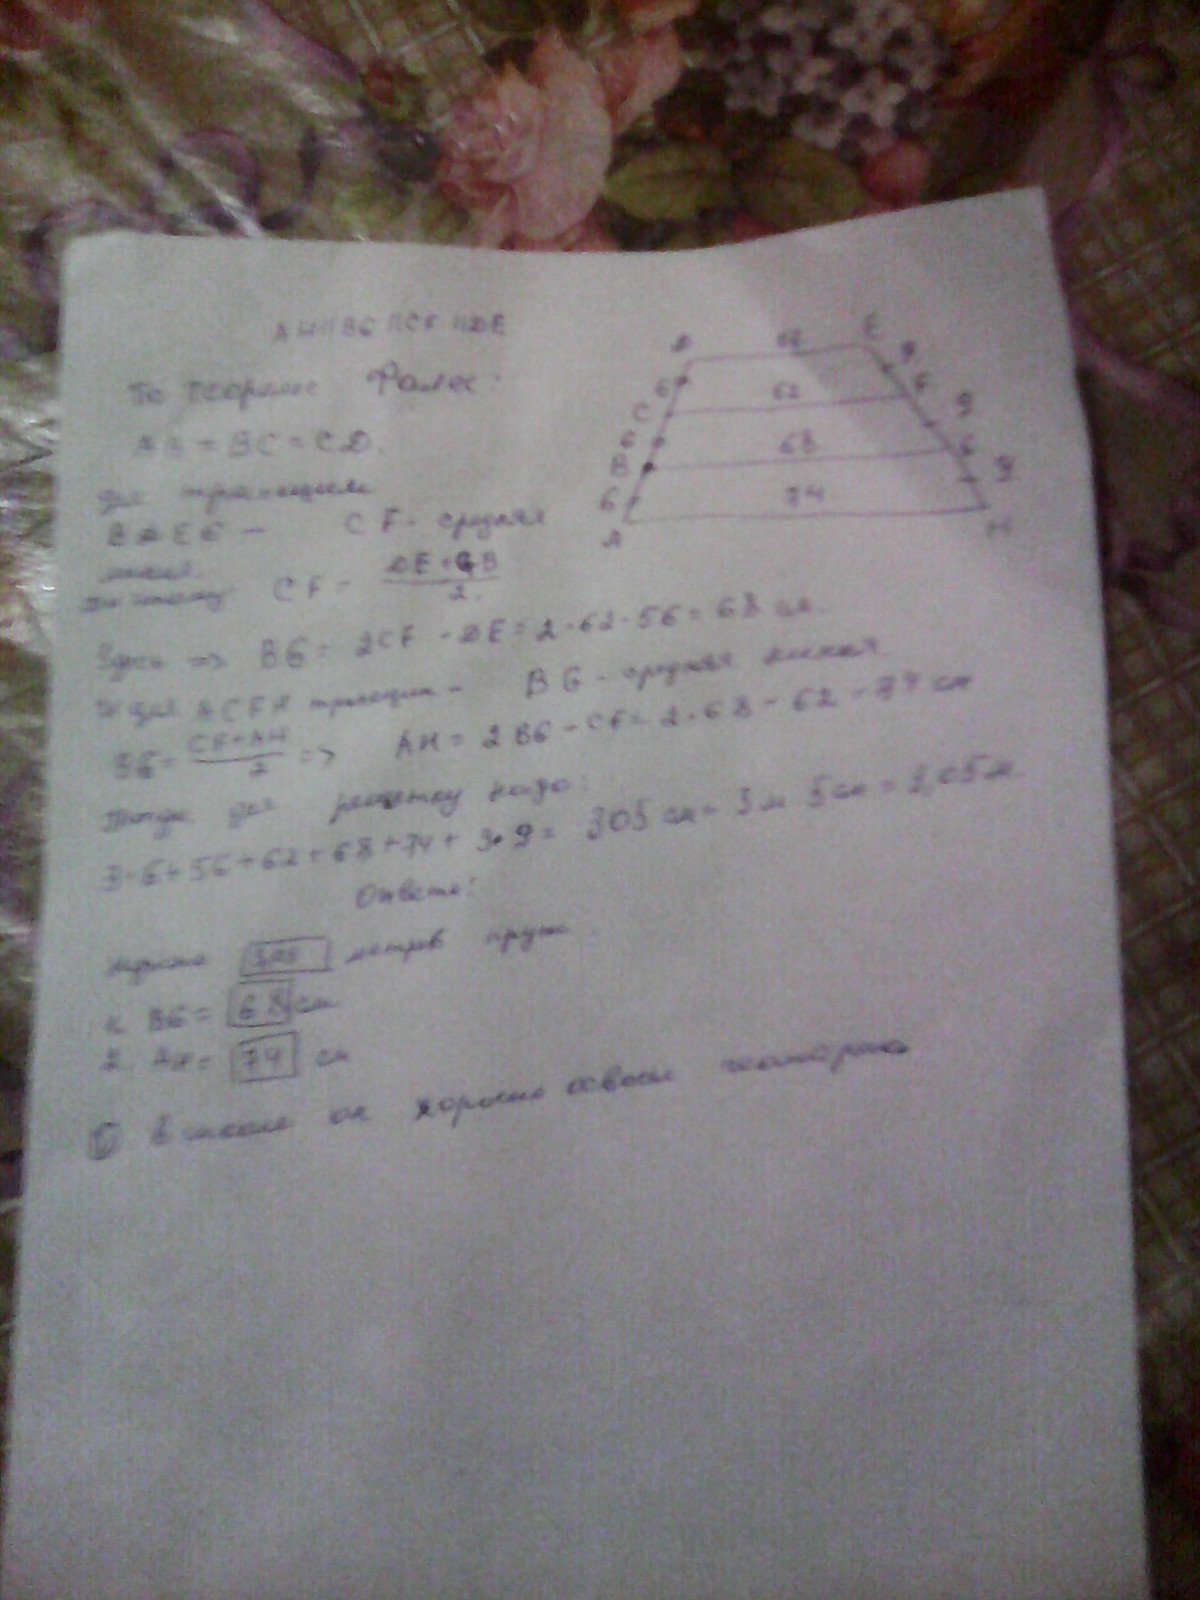 AH || BG || CF || DE
По теореме Фалес
AB = BC = CD.
для трапеции
BDEG – CF - средняя
линия
поэтому CF = DE + GB / 2
Здесь => BG = 2CF - DE = 2·62-56 = 68 см.
и для ACFH трапеции - BG - средняя линия
BG = CF + AH / 2 => AH = 2BG - CF = 2·68 - 62 = 74 см
решетку надо:
3·6+56+62+68+74+ 3·9= 305 см= 3м 5см = 3,05м.
Ответ:
Нужно метров
1. BG = 68 см
2. AH = 74 см
В школе он хорошо освоил
D 56 E
6 9
C 62 6
6 9
B 68 6
6 9
A 74 H